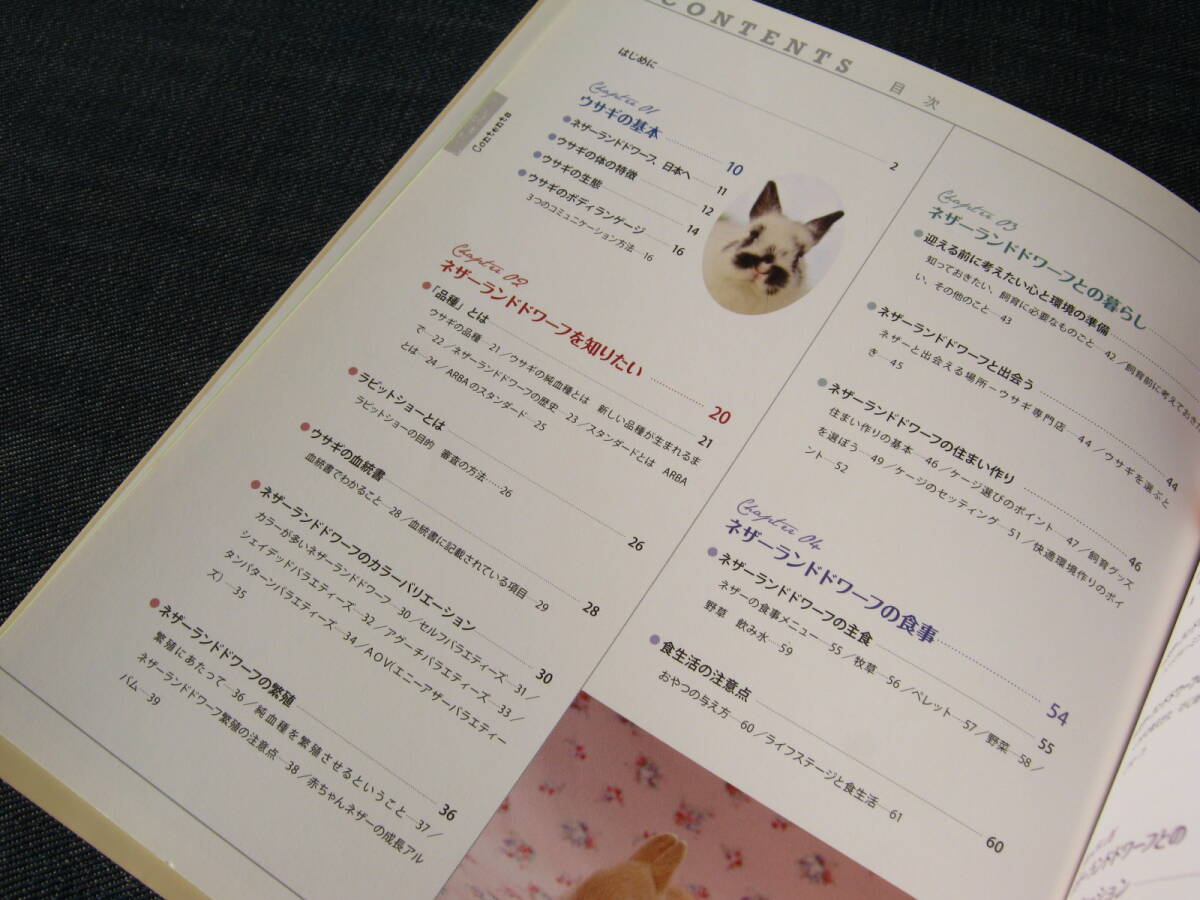 CONTENTS 目次
Contents
はじめに 2
Chapter 01
ウサギの基本 10
●ネザーランドドワーフ、日本へ 11
●ウサギの体の特徴 12
●ウサギの生態 14
●ウサギのボディランゲージ 16
3つのコミュニケーション方法…16
Chapter 02
ネザーランドドワーフを知りたい 20
●「品種」とは 21
ウサギの品種 21／ウサギの純血種とは 新しい品種が生まれるま
で…22／ネザーランドドワーフの歴史…23／スタンダードとは ARBA
とは…24／ARBAのスタンダード…25
●ラビットショーとは 26
ラビットショーの目的 審査の方法…26
●ウサギの血統書 28
血統書でわかること…28／血統書に記載されている項目…29
●ネザーランドドワーフのカラーバリエーション 30
カラーが多いネザーランドドワーフ…30／セルフバラエティーズ…31／
シェイデッドバラエティーズ…32／アグーチバラエティーズ…33／
タンパターンバラエティーズ…34／AOV（エニーアザーバラエティー
ズ）…35
●ネザーランドドワーフの繁殖 36
繁殖にあたって…36／純血種を繁殖させるということ…37／
ネザーランドドワーフ繁殖の注意点…38／赤ちゃんネザーの成長アル
バム…39
Chapter 03
ネザーランドドワーフとの暮らし
●迎える前に考えたい心と環境の準備
知っておきたい、飼育に必要なものこと…42／飼育前に考えておきた
い、その他のこと…43
●ネザーランドドワーフと出会う 44
ネザーと出会える場所－ウサギ専門店…44／ウサギを選ぶと
き…45
●ネザーランドドワーフの住まい作り 46
住まい作りの基本…46／ケージ選びのポイント…47／飼育グッズ
を選ぼう…49／ケージのセッティング…51／快適環境作りのポイ
ント…52
Chapter 04
ネザーランドドワーフの食事 54
●ネザーランドドワーフの主食 55
ネザーの食事メニュー…55／牧草…56／ペレット…57／野菜…58／
野草 飲み水…59
●食生活の注意点 60
おやつの与え方…60／ライフステージと食生活…61